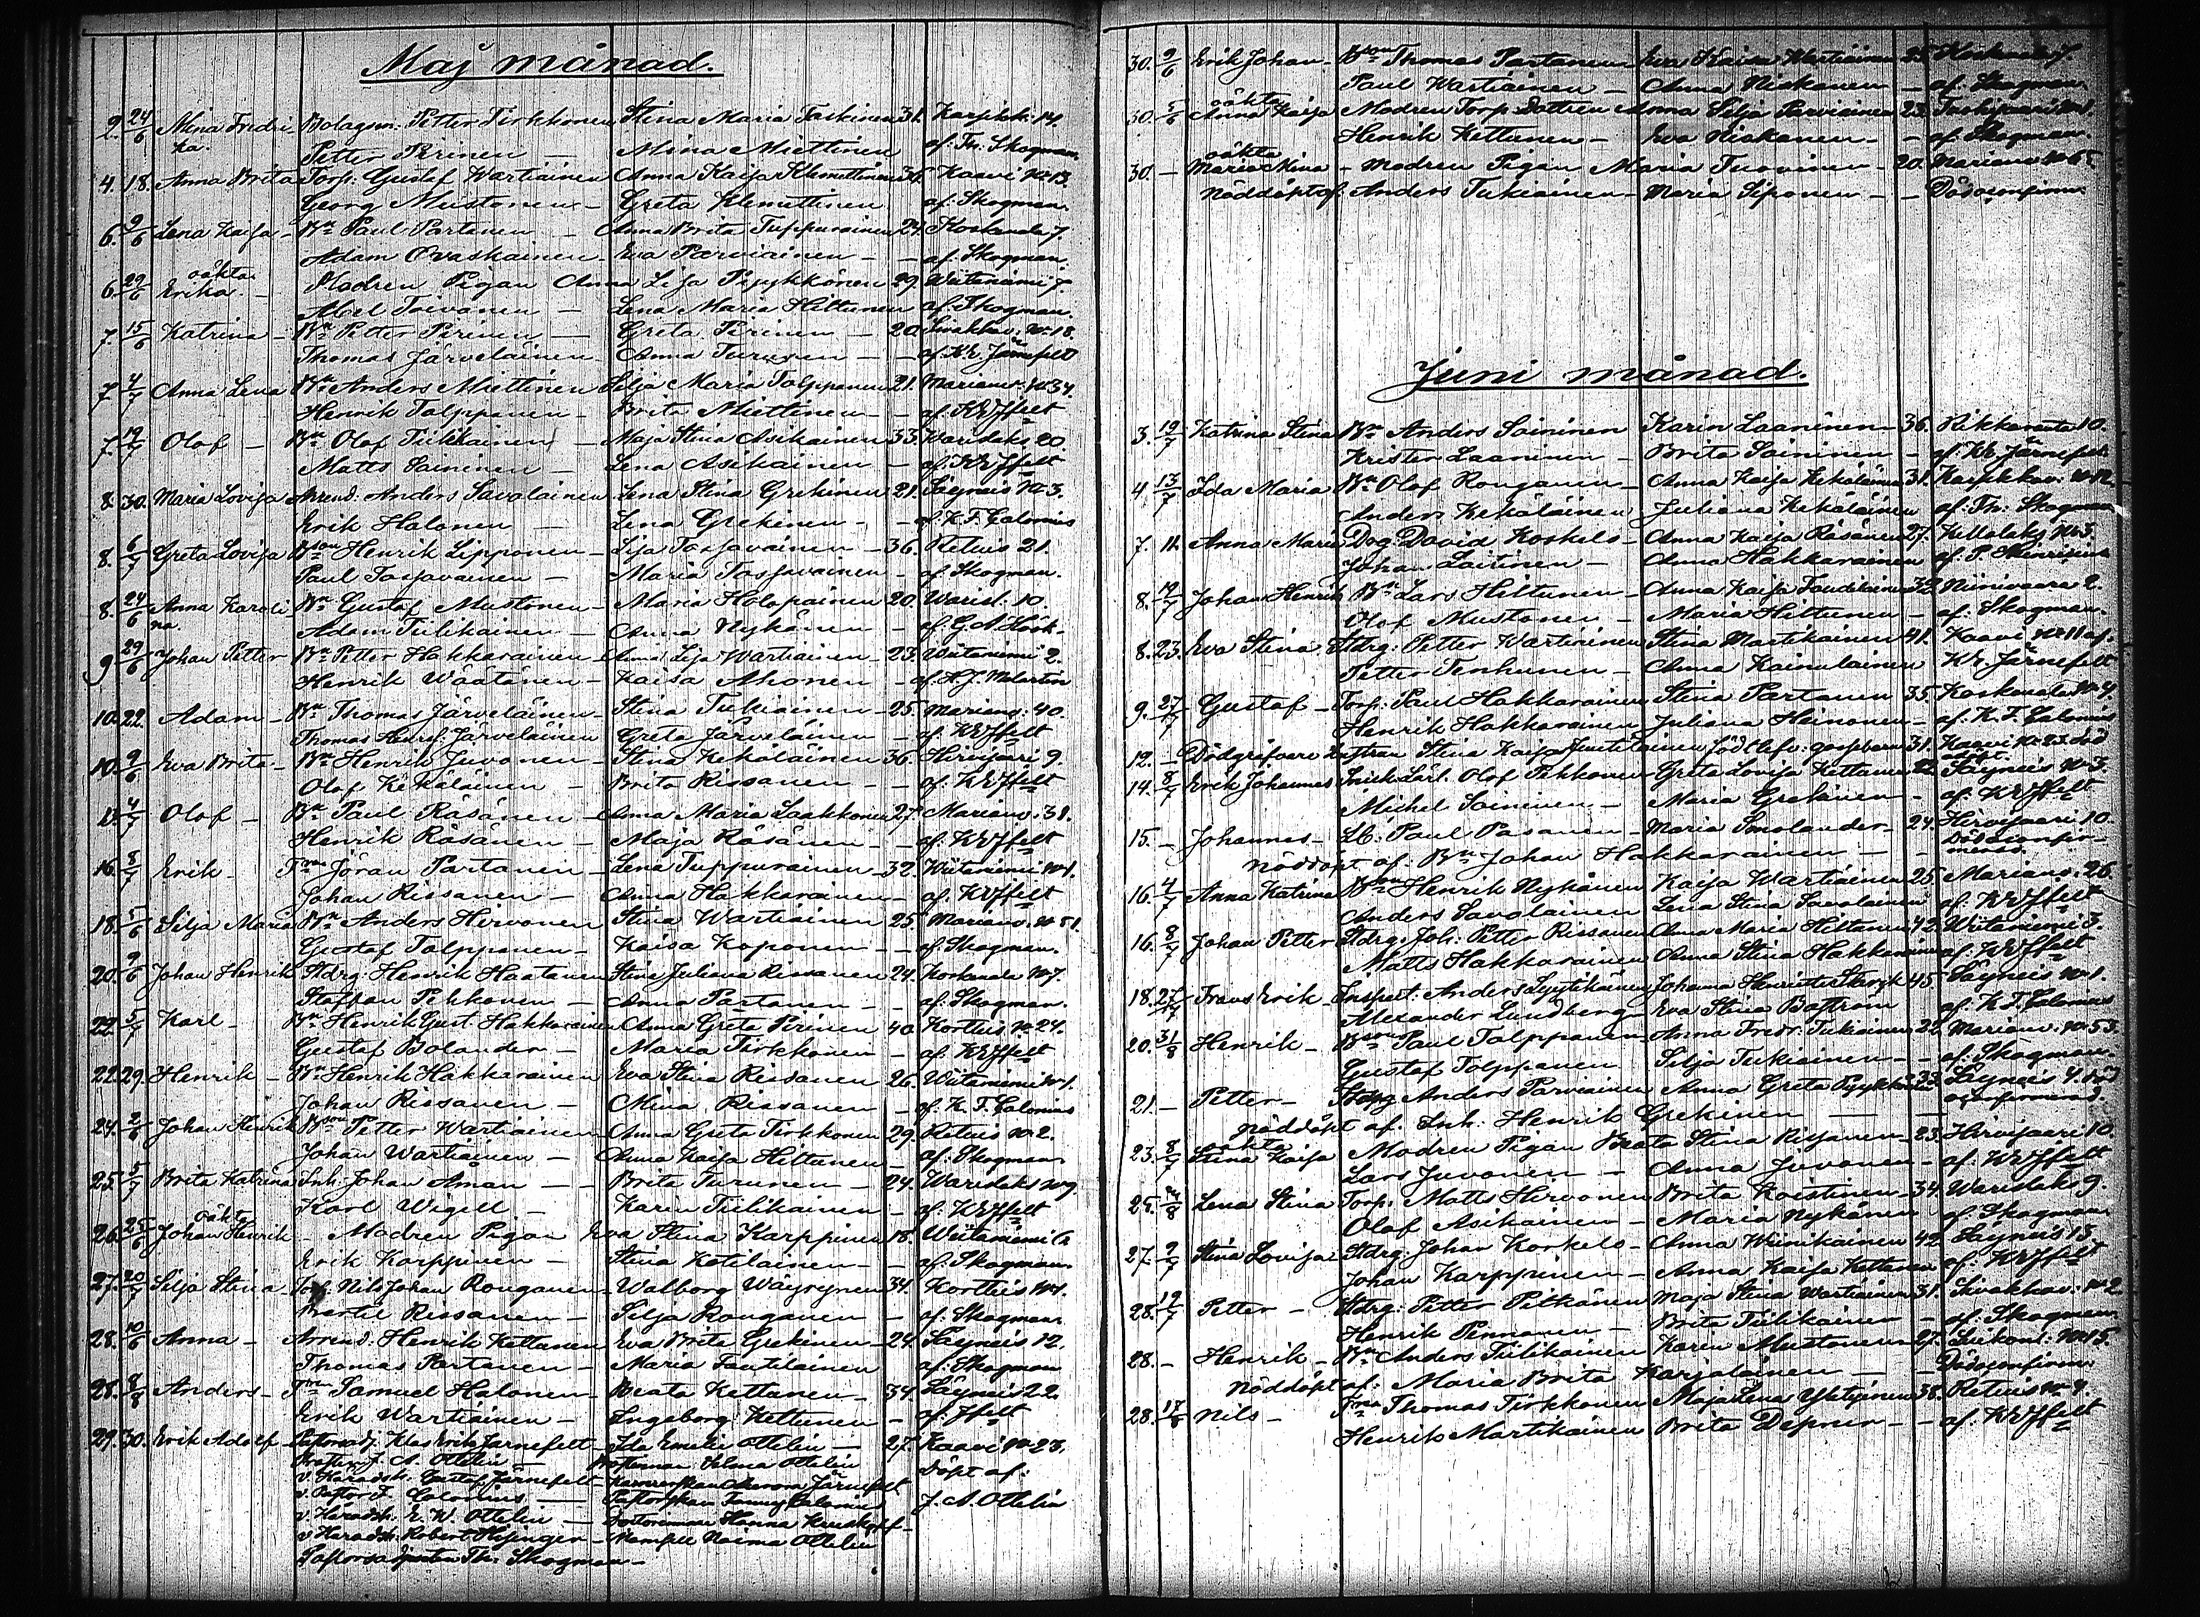 Maj månad.
2. 24/6 Mina Fredri Bolagsm: Petter Tirkkonen Stina Maria Taskinen 31. Karjikk: 14.
ka. Petter Pirinen — Mina Miettinen af: Th. Skogman.
4. 18. Anna Brita Torp: Gustaf Wartiainen Anna Kaija Klemettinen 36. Kaavi No 13.
Georg Mustonen — Greta Klemettinen af: Skogman.
6. 9/6 Lena Kaisa — Bn Paul Partanen — Anna Brita Tuppurainen 24. Koskanala 7.
Adam Ovaskainen — Eva Parviainen — — af: Skogman
6. 29/6 oäkta Erika. — Modren Pigan Anna Lisa Pyykkönen 29. Wiitaniemi 7.
Abel Toivanen — Lena Maria Hiltunen af: Skogman.
7. 15/6 Katrina — Bn Petter Pirinen — Greta Pirinen — 20. Siwakkav: No 18.
Thomas Järveläinen — Anna Turunen — — af. Kr. Järnefelt
7. 4/7 Anna Lena Bn Anders Miettinen Silja Maria Tolppanen 21. Marianv: No 34.
Henrik Tolppanen — Brita Miettinen — — af. KEJffelt
7. 19/7 Olof — Bn Olof Tiilikkainen — Maja Stina Asikainen 33. Warislaks 20
Matts Saininen — Lena Asikainen — af. KEJffelt
8. 30. Maria Lovisa Arend: Anders Savolainen Lena Stina Grekinen 21. Säyneis No 3.
Erik Halonen — Lena Grekinen — — af. K. F. Calonius
8. 6/7 Greta Lovisa Bson Henrik Lipponen — Lisa Tossavainen — 36. Retuis 21.
Paul Tossavainen — Maria Tossavainen — af. Skogman.
8. 24/6 Anna Karoli Bn Gustaf Mustonen — Maria Holopainen 20. Warisl: 10
na. Adam Tiilikainen — Anna Nykänen — af. G. A. Höök.
9. 29/6 Johan Petter Bn Petter Hakkarainen Anna Lisa Wartiainen — 23. Wiitaniemi 2.
Henrik Wäätänen — Kaisa Ahonen — af. A. J. Molarten
10. 22. Adam — Bn Thomas Järveläinen — Stina Tukiainen — 25. Marianv: 40.
Thomas Henr: Järveläinen Greta Järveläinen — af. KEJffelt
10. 9/6 Eva Brita — Bn Henrik Juvonen — Stina Kekäläinen 36. Hirvijaari 9.
Olof Kekäläinen — Brita Rissanen — — af. KEJffelt
13. 4/7 Olof — Bn Paul Räsänen — Anna Maria Laakkonen 27. Marianv. 31.
Henrik Räsänen — Maja Räsänen — — af. KEJffelt
16. 8/7 Erik — Göran Partanen — Lena Tuppurainen — 32. Wiitaniemi No 1.
Johan Rissanen — Anna Hakkarainen — af. KEJffelt
18. 5/6 Silja Maria Bn Anders Hirvonen Stina Wartiainen 25. Marianv. No 51.
Gustaf Tolppanen — Kaisa Koponen — — af. Skogman.
20. 9/6 Johan Henrik Stdrg: Henrik Haatanen Stina Juliana Rissanen 24. Koskanala No 7.
Staffan Pekkonen — Anna Partanen — af. Skogman.
22. 5/7 Karl — Bn Henrik Gust. Hakkarainen Anna Greta Pirinen 40. Korteis No 24.
Gustaf Bolander — Maria Tirkkonen — af. KEJffelt
22. 29. Henrik — Bn Henrik Hakkarainen Eva Stina Rissanen 26. Wiitaniemi No 1.
Johan Rissanen — Mina Rissanen — af. K. F. Calonius
24. 2/6 Johan Henrik Bson Petter Wartiainen Anna Greta Tirkkonen 29. Retuis No 2.
Johan Wartiainen — Anna Kaisa Hiltunen — af. Skogman
25. 5/7 Brita Katrina Inh: Johan Åman — — Brita Turunen — 24. Warislaks No 9
Karl Wigell — Karin Tiilikainen — af. KEJffelt
26. 25/6 oäkt. Johan Henrik — Modren Pigan Eva Stina Karppinen 18. Wiitaniemi
Erik Karppinen — Stina Kotilainen — — af. Skogman.
27. 20/7 Silja Stina — Torp. Nils Johan Rouganen — Walborg Wäyrynen 34. Kortteis No 1.
Bertil Rissanen — Silja Rouganen — af. Skogman.
28. 10/6 Anna — Arrend: Henrik Kettunen Eva Brita Grekinen — 24. Säyneis 12.
Thomas Partanen — Maria Tautilainen af. Skogman
28. 8/8 Anders — Samuel Halonen — Beata Kettunen — 34. Säyneis 22.
Erik Wartiainen — Ingeborg Kettunen — af. Jffelt
29. 30. Erik Adolf — Pastorsadj. Klas Erik Järnefelt — Ida Emilie Ottelin — 27. Kaavi No 23.
J. A. Ottelin — Prostinnan Selma Ottelin döpt af:
v. Häradsh. Gustaf Järnefelt — Aurora Järnefelt J. A. Ottelin
v. Pastor F. Calonius — Pastorskan Fanny Calonius
v. Häradsh. E. W. Ottelin — Hanna
v. Häradsh. Robert Hisinger — Mamsell Naima Ottelin
Pastorsadjunkten Th: Skogman —
30. 9/6 Erik Johan — Bson Thomas Partanen — Eva Kaisa Wartiainen 25. Koskanala 7.
Paul Wartiainen — Anna Niskanen — — af. Skogman.
30. 5/6 oäkta Anna Kaisa Modren Torp. Dottren Anna Silja Parviainen 23.
Henrik Kettunen — Eva Niskanen — — af. Skogman.
30. — oäkta Maria Mina — Modren Pigan Maria Tuovinen — 20. Marianv No 65.
Nöddöpt af Anders Tukiainen — Maria Siponen — — Död oconfirm
Juni månad.
3. 19/7 Katrina Stina Bn Anders Saininen Karin Laaninen — 36. Rikkaranta 10.
Krister Laaninen — Brita Saininen — af. Kr. Järnefelt
4. 13/7 Ida Maria Bn Olof Rouganen — Anna Kaisa Kekäläinen 31. Karjikkav: No 12.
Anders Kekäläinen Juliana Kekäläinen af: Th: Skogman
7. 11. Anna Maria Dog. David Koskelo — Anna Kaisa Räsänen 27. Kellolaks No 3.
Johan Laitinen — Anna Hakkarainen af. P.
8. 19/7 Johan Henrik Bn Lars Hiltunen — Anna Kaisa 32. Niinivaara 2.
Olof Mustonen — Maria Hiltunen — af. Skogman.
8. 23. Eva Stina Stdrg: Petter Wartiainen Stina Martikainen 41. Kaavi No 11 af.
Petter Tenhunen — Anna Kainulainen Kr. Järnefelt
9. 27/7 Gustaf — Torp: Paul Hakkarainen Stina Partanen 35. Koskanala No 4.
Henrik Hakkarainen Juliana Heinonen — af: K. F. Calonius
12. — Dödgräfvare Stina Kaisa född lefv: gossebarn 31. Kaavi No 23. död
14. 8/7 Erik Johannes Snick. Lärl. Olof Pekkonen Greta Lovisa Kettunen 22. Säyneis No 3.
Michel Saininen — Maria Grekinen — af. KEJffelt
15. — Johannes — Lb: Paul Pasanen — Maria Smolander — 24. Hirvijaari 10.
Nöddöpt af. Bn Johan Hakkarainen — — Död oconfirmerad
16. 4/7 Anna Katrina Bson Henrik Nykänen Kaisa Wartiainen 25. Marianv. 26.
Anders Savolainen Lena Stina Savolainen af. KEJffelt
16. 8/7 Johan Petter Stdrg: Joh: Petter Rissanen Anna Maria Hiltunen 42. Wiitaniemi 3.
Matts Hakkarainen Anna Stina Hakkarainen af. KEJffelt
18. 27/7 Frans Erik — Inspect: Anders Lyytikäinen Johanna Henriette 45. Säyneis No 1.
Alexander Lundberg Eva Stina Boström af. K. F. Calonius
20. 31/8 Henrik — Bson Paul Tolppanen Anna Fredr: Tukiainen 22. Marianv: No 53.
Gustaf Tolppanen Silja Tukiainen — — af: Skogman.
21. — Petter — Stdrg Anders Parviainen Anna Greta Pyykkönen 33. Säyneis 4. död
nöddöpt af. Inh: Henrik Grekinen — — oconfirmerad.
23. 8/7 oäkta Stina Kaisa Modren Pigan Beata Stina Rissanen — 23. Hirvijaari 10.
Lars Juvonen — Anna Juvonen — af. KEJffelt
25. Lena Stina Torp. Matts Hirvonen Brita Koistinen — 34. Warislaks 9.
Olof Asikainen — Maria Nykänen af. Skogman
27. 9/7 Stina Lovisa Stdrg: Johan Korkelo — Anna Wainikainen 42. Säyneis 13.
Johan Karppinen — Anna Kaisa Kettunen af. KEJffelt
28. 19/7 Petter — Stdrg: Petter Pitkänen Maja Stina Wartiainen 31. Siwakkav: No 2
Henrik Pennanen — Brita Tiilikainen — af. Skogman
28. — Henrik — Bn Anders Tiilikainen Karin Mustonen 27. No 15.
Nöddöpt af: Maria Brita Karjalainen — Död oconfirm
28. 17/8 Nils — Thomas Tirkkonen Maja Lena 38. Retuis No 4.
Henrik Martikainen Brita — — af. KEJffelt